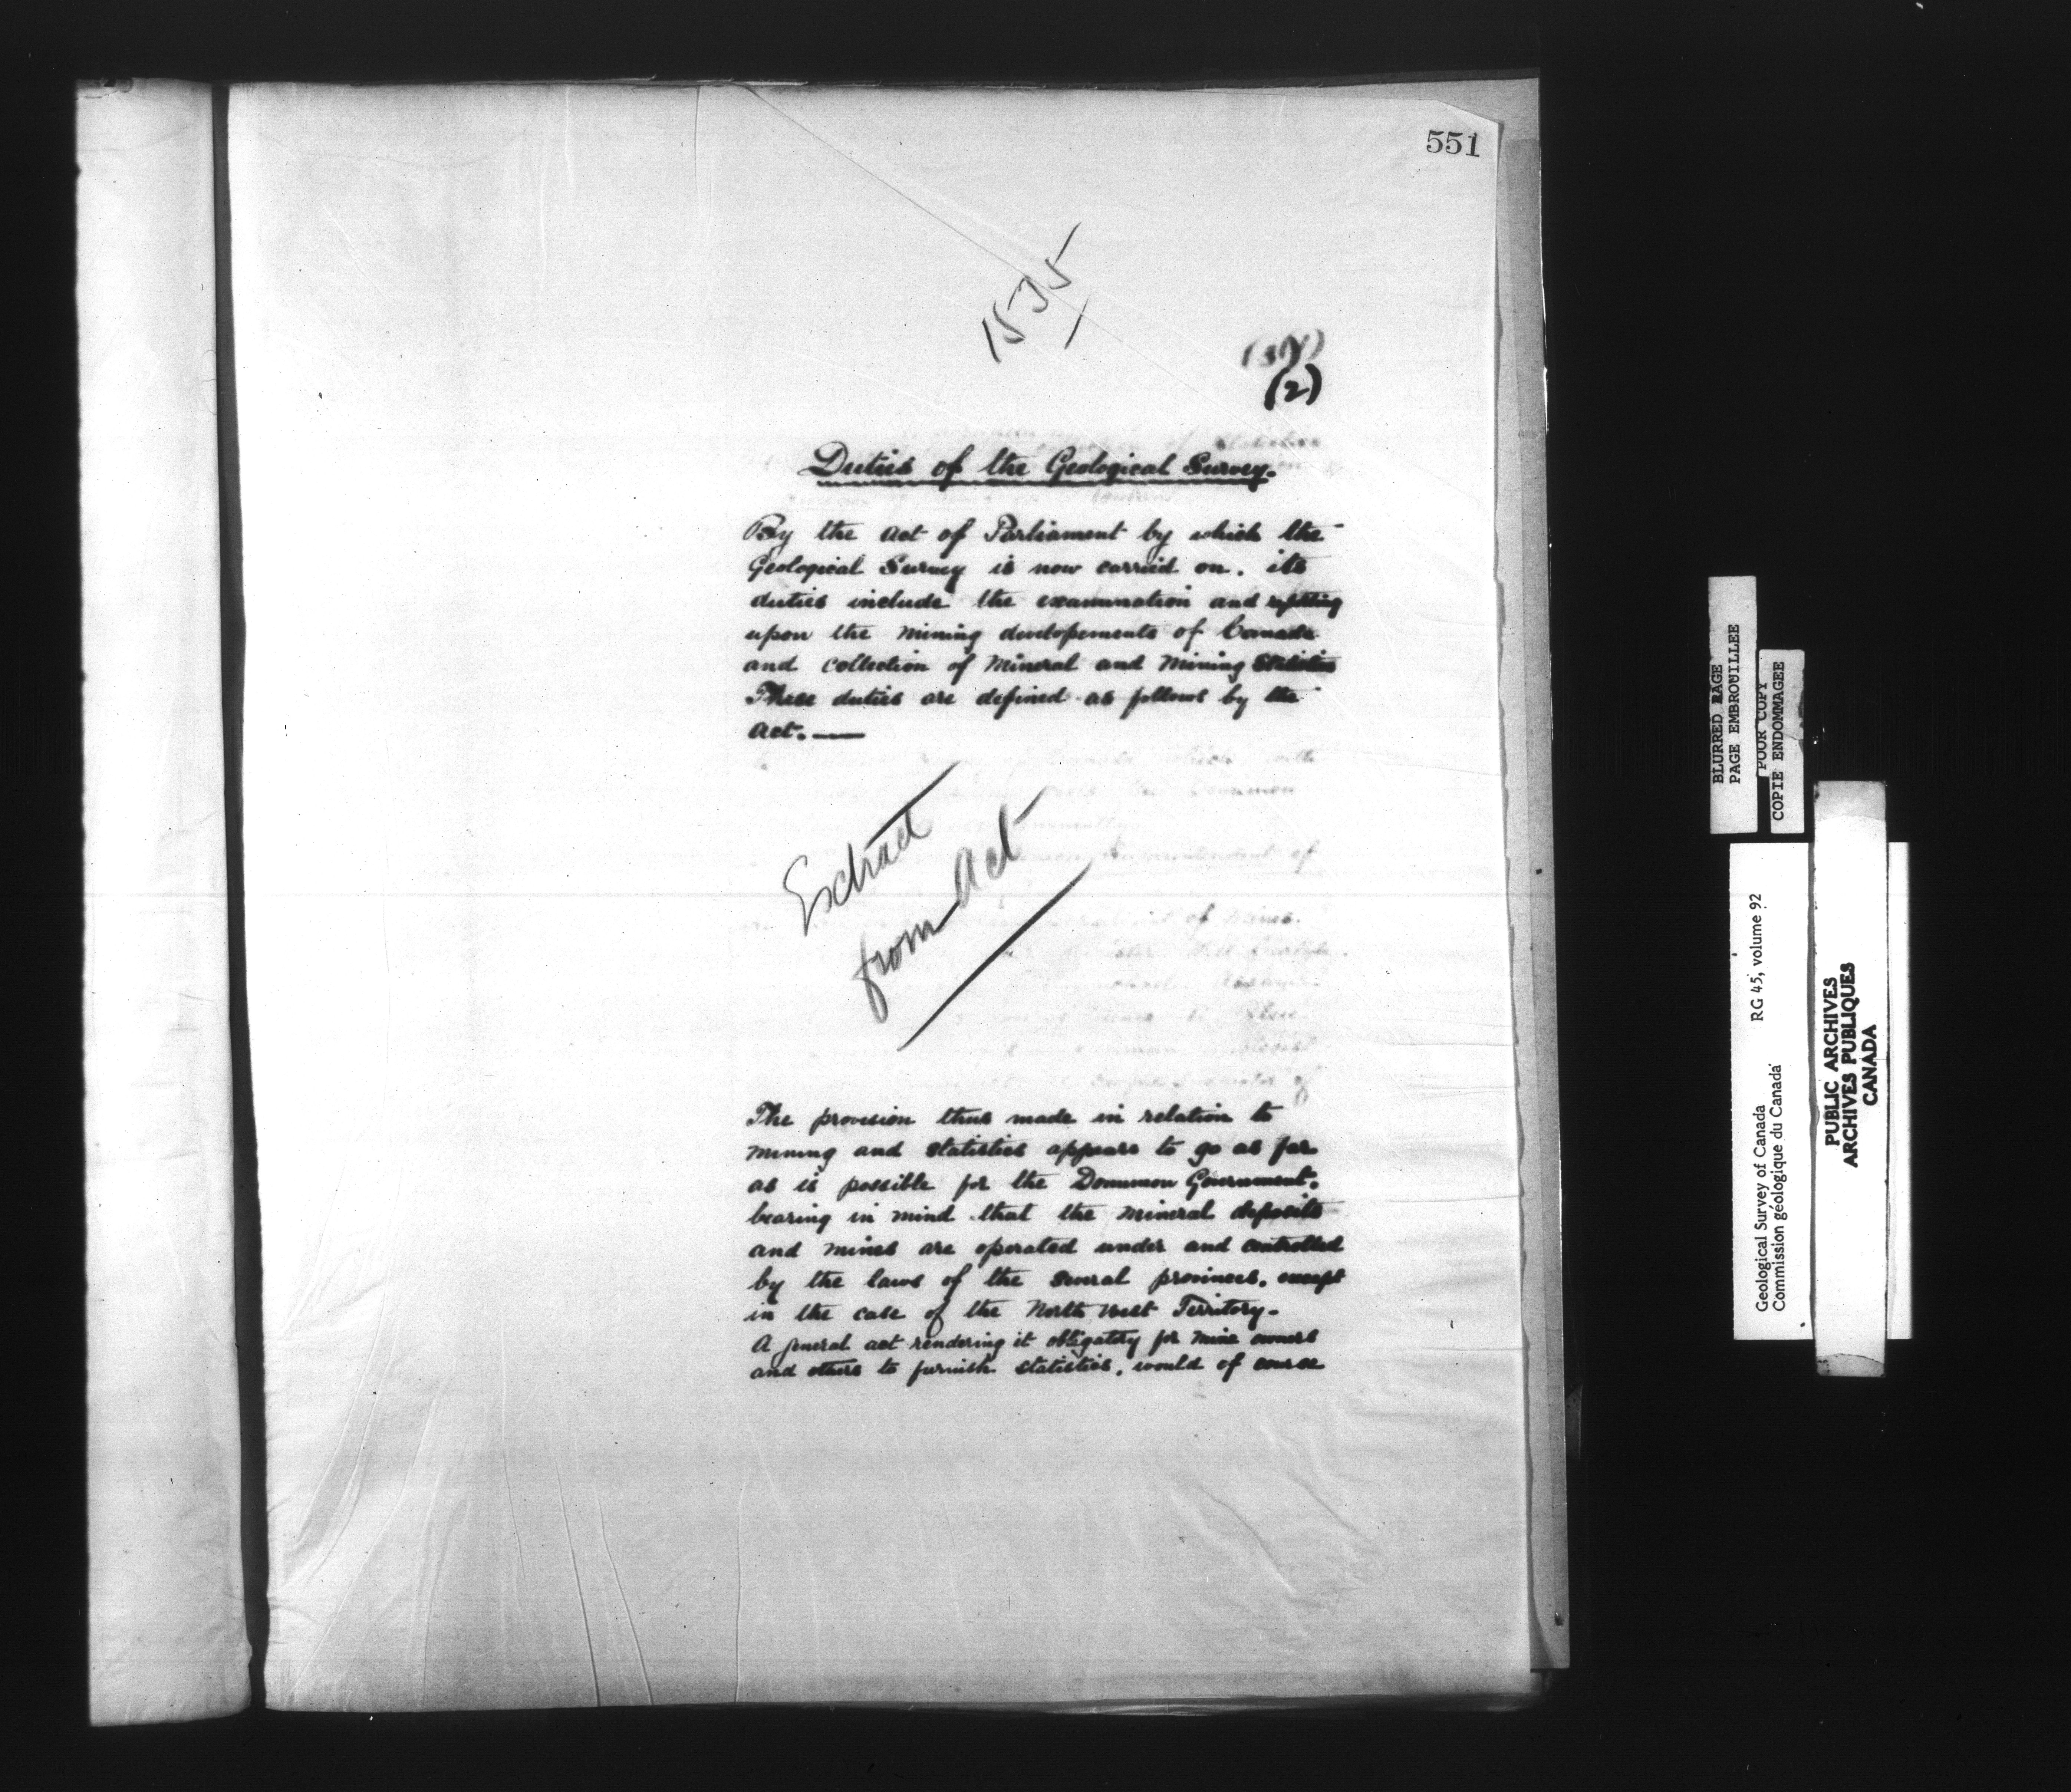 551
1535
(2)
Duties of the Geological Survey.
By the act of Parliament by which the
Geological Survey is now carried on. its
duties include the examination and reporting
upon the mining developements of Canada
and collection of mineral and mining statistics
These duties are defined as follows by the
act. —
Extract
from Act
The provision thus made in relation to
mining and statistics appears to go as far
as is possible for the Dominion Government.
bearing in mind that the mineral deposits
and mines are operated under and controlled
by the laws of the several provinces. except
in the case of the North West Territory-
A general act rendering it obligatory for mine owners
and others to furnish statistics, would of course
BLURRED PAGE
PAGE EMBROUILLEE
POOR COPY
COPIE ENDOMMAGEE
Geological Survey of Canada RG 45, volume 92
Commission géologique du Canada
PUBLIC ARCHIVES
ARCHIVES PUBLIQUES
CANADA